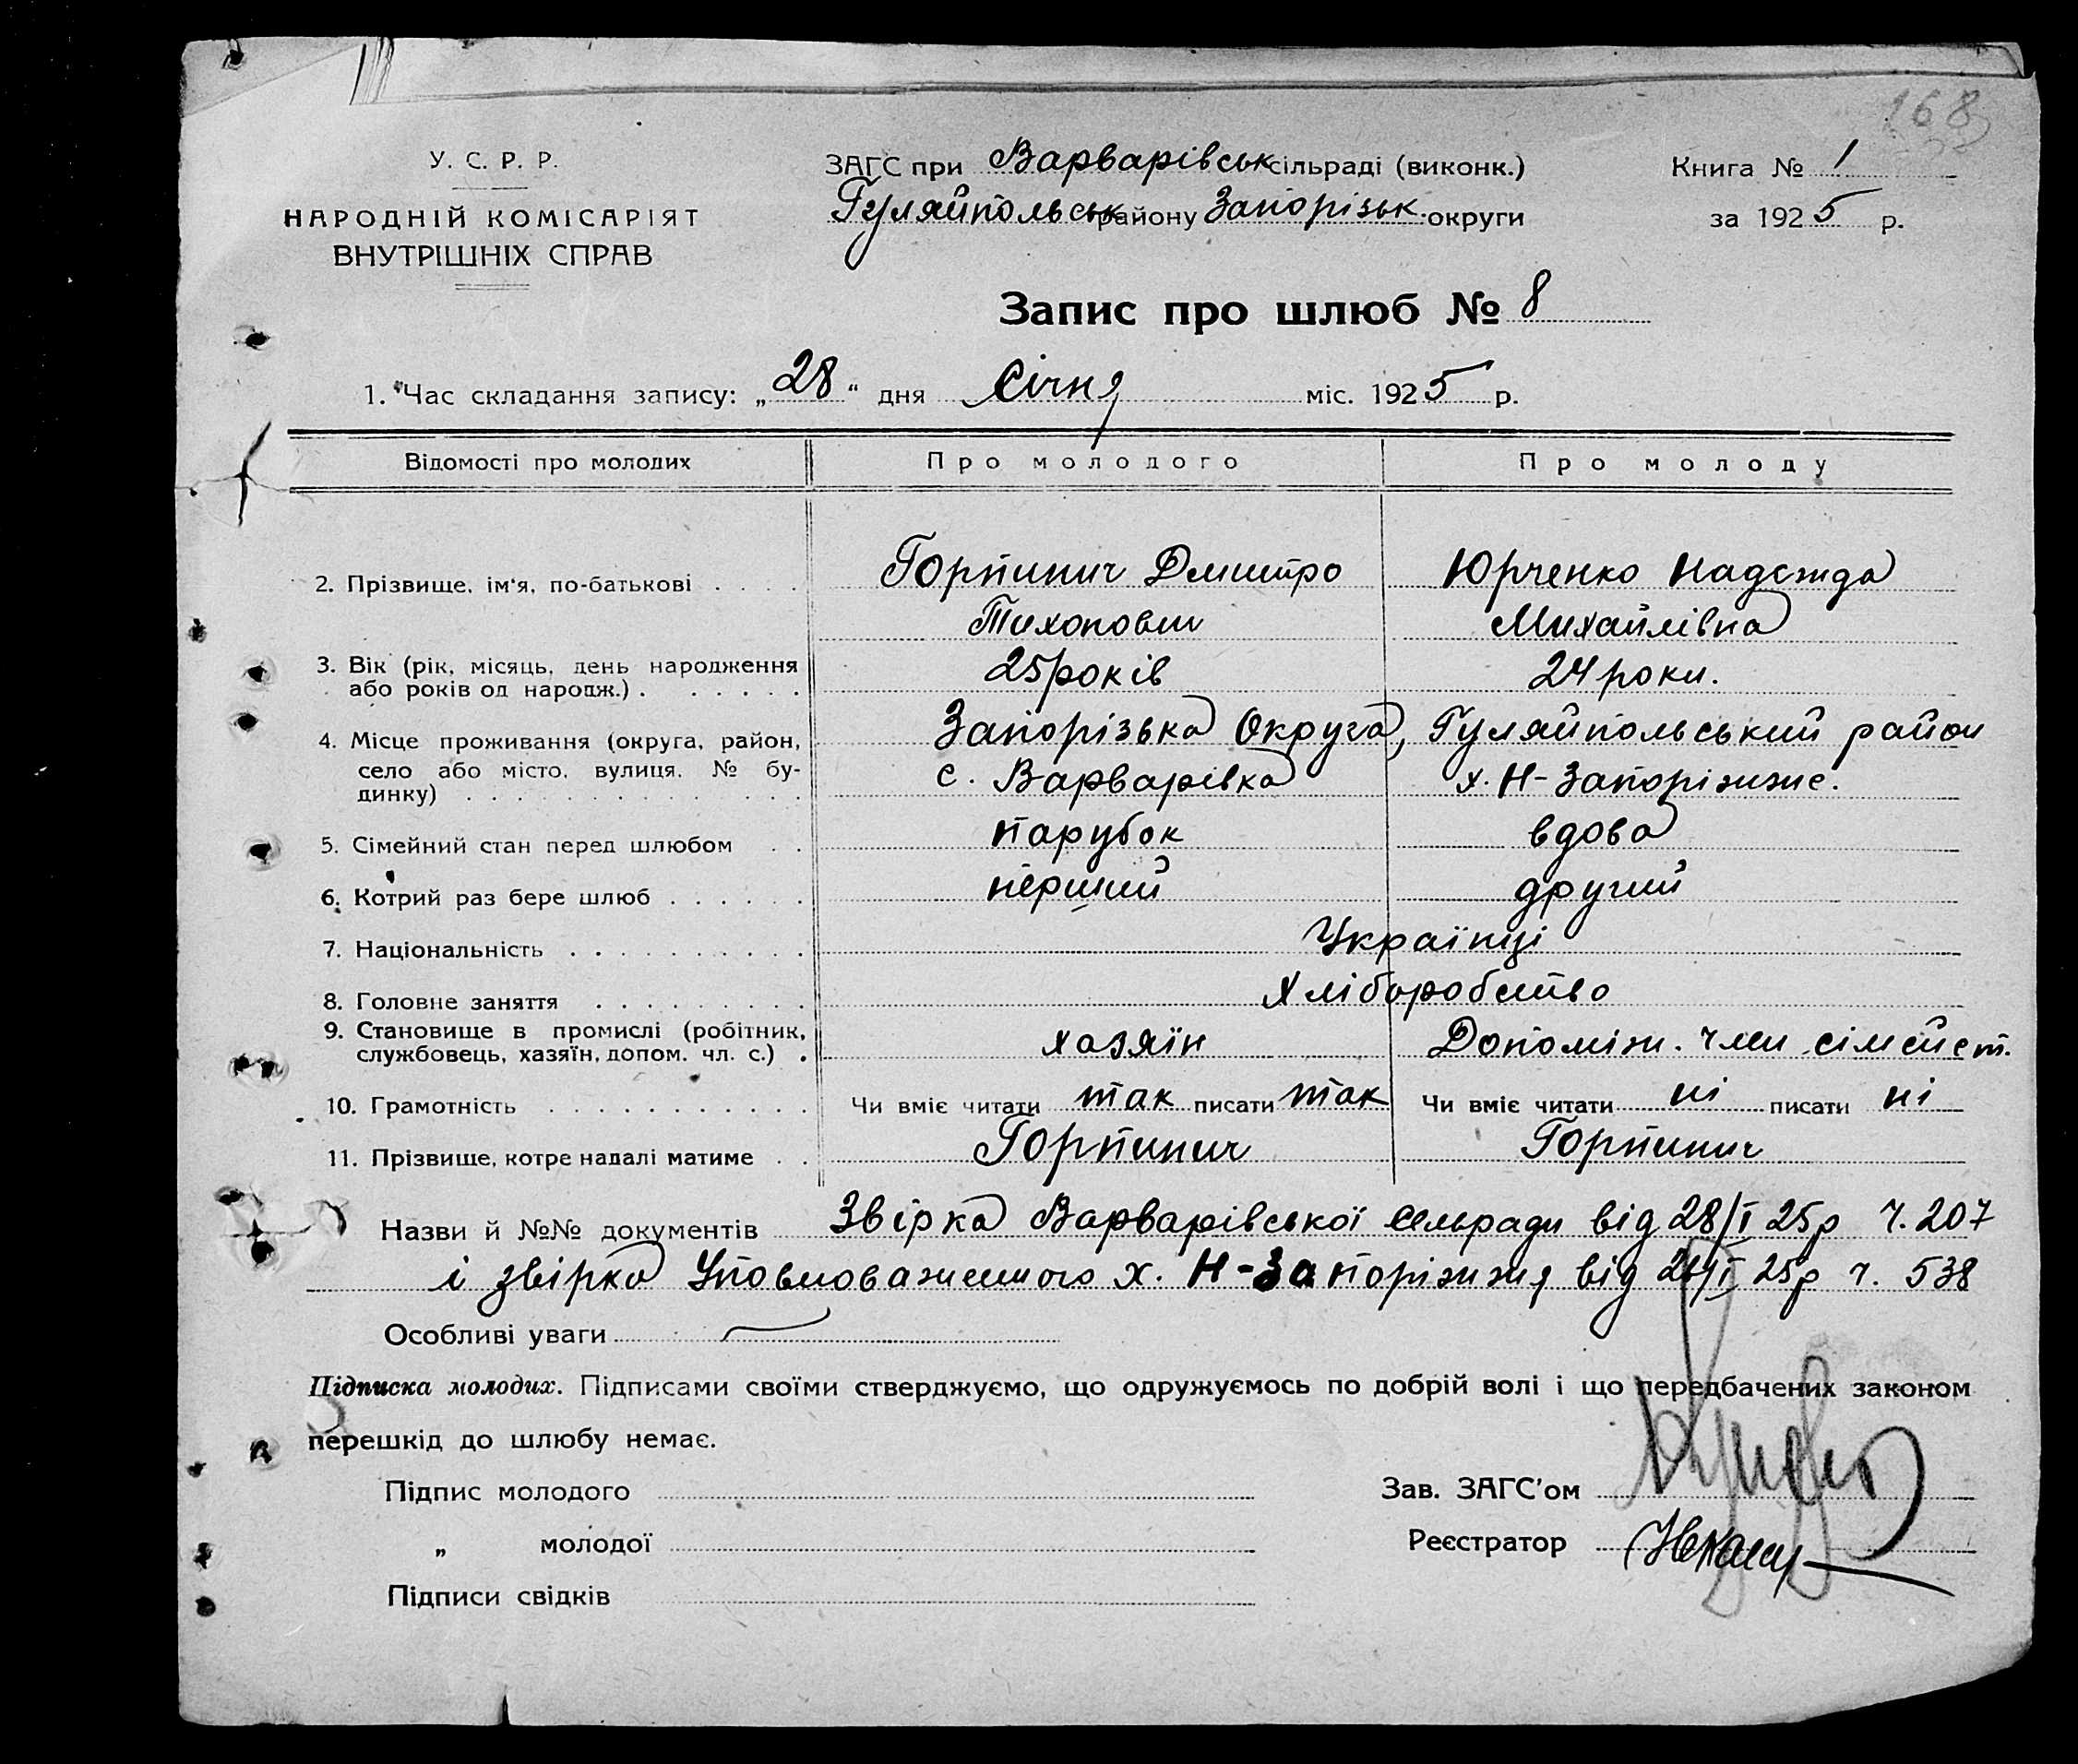 168
У. С. Р. Р.
НАРОДНІЙ КОМІСАРІЯТ
ВНУТРІШНІХ СПРАВ
ЗАГС при Варварівськ сільраді (виконк.)
Гуляйпольськ району Запорізьк. округи
Книга № 1
за 1925 р.
Запис про шлюб № 8
1. Час складання запису: „28“ дня Січня міс. 1925 р.
Відомості про молодих Про молодого Про молоду
2. Прізвище, ім'я, по-батькові Горпинич Дмитро Юрченко Надежда
Тихонович Михайлівна
3. Вік (рік, місяць, день народження 25 років 24 роки.
або років од народж.)
4. Місце проживання (округа, район, Запорізька Округа, Гуляйпольський район
село або місто, вулиця, № бу- с. Варварівка х. Н-Запоріжжє.
динку)
5. Сімейний стан перед шлюбом парубок вдова
6. Котрий раз бере шлюб перший другий
7. Національність Українці
8. Головне заняття Хліборобство
9. Становище в промислі (робітник, хазяїн Допоміж. член сімейст.
службовець, хазяїн, допом. чл. с.)
10. Грамотність Чи вміє читати так писати так Чи вміє читати ні писати ні
11. Прізвище, котре надалі матиме Горпинич Горпинич
Назви й №№ документів Звірка Варварівської Сельради від 28/I 25р ч. 207
і звірка Уповноваженого х. Н-Запоріжжя від 26/I 25р ч. 538
Особливі уваги
Підписка молодих. Підписами своїми стверджуємо, що одружуємось по добрій волі і що передбачених законом
перешкід до шлюбу немає.
Підпис молодого
„ молодої
Підписи свідків
Зав. ЗАГС'ом
Реєстратор